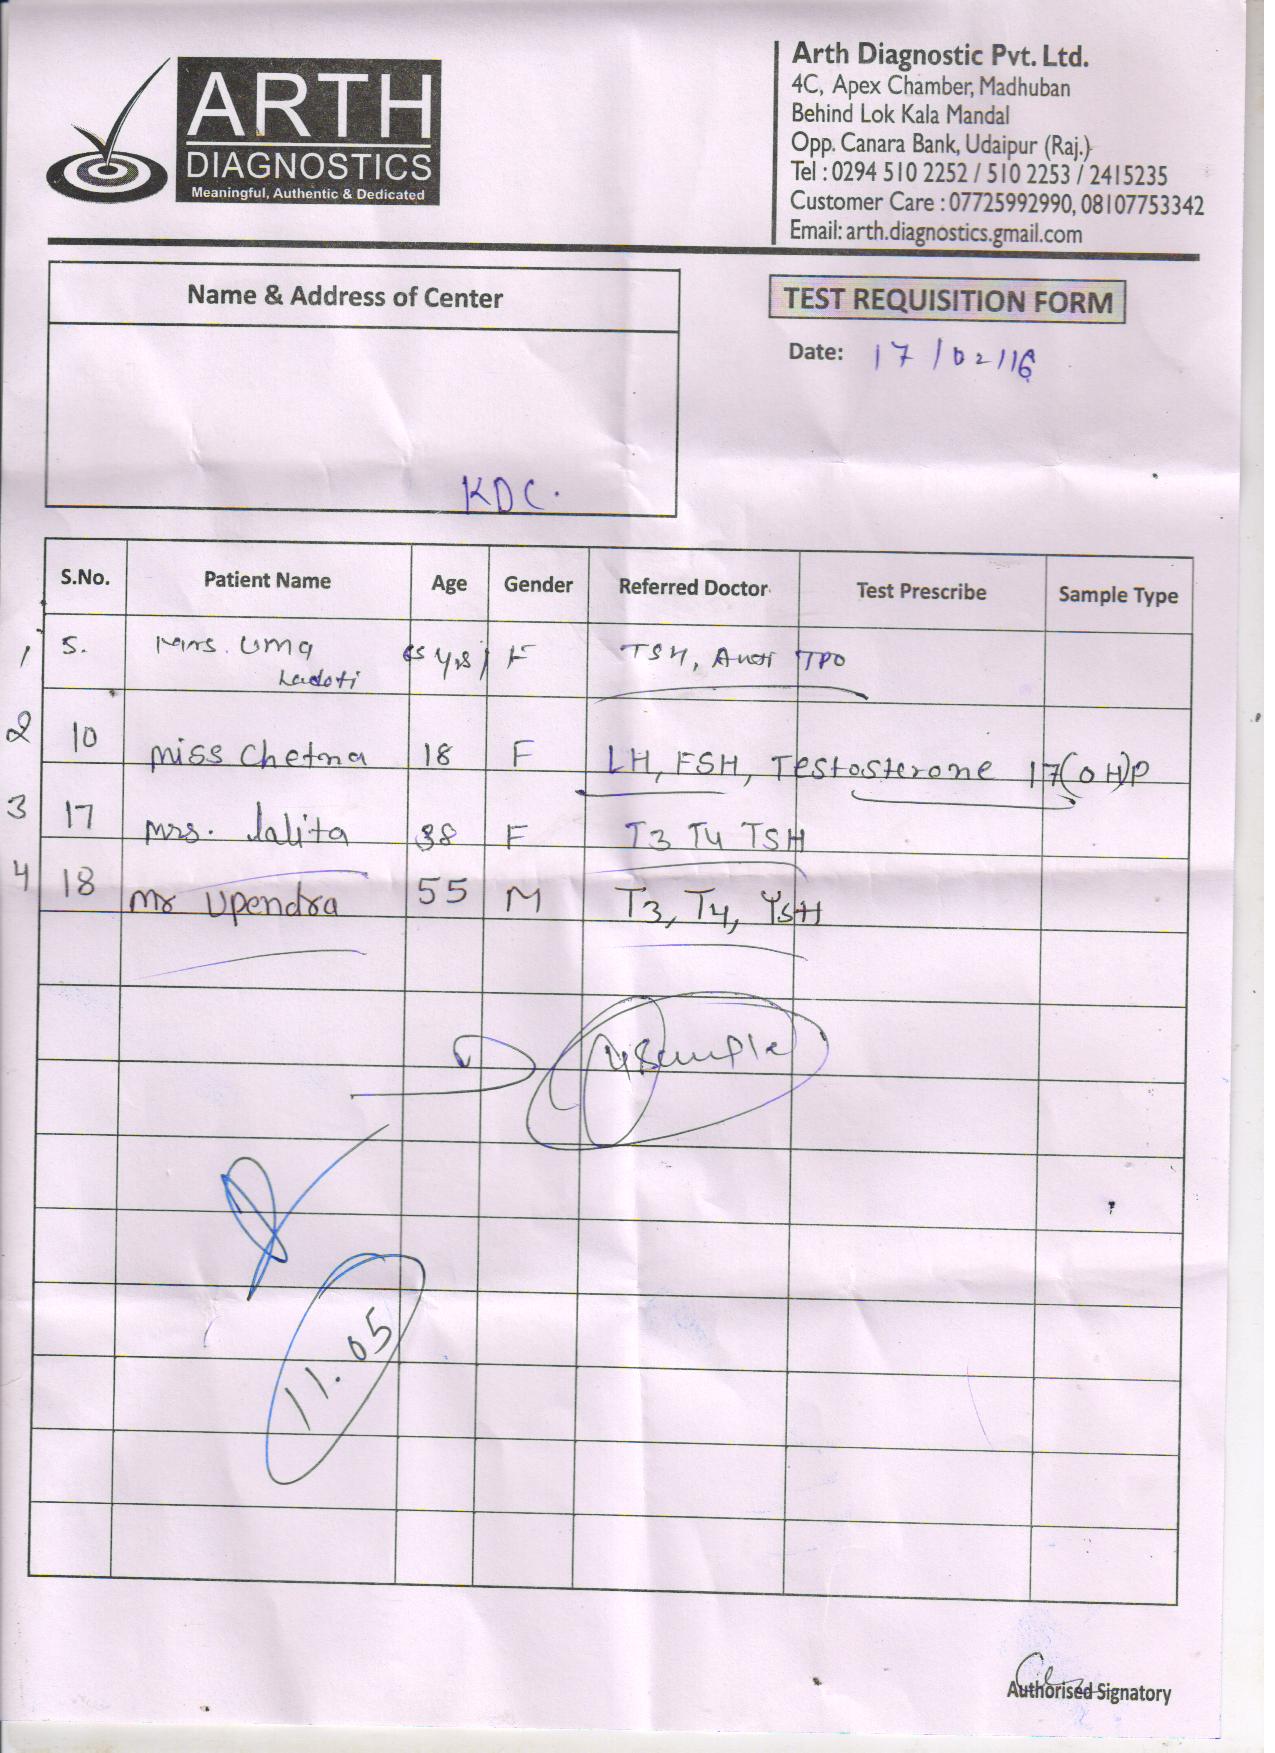 ARTH
DIAGNOSTICS
Meaningful, Authentic & Dedicated
Arth Diagnostic Pvt. Ltd.
4C, Apex Chamber, Madhuban
Behind Lok Kala Mandal
Opp. Canara Bank, Udaipur (Raj.)
Tel : 0294 510 2252 / 510 2253 / 2415235
Customer Care : 07725992990, 08107753342
Email: arth.diagnostics.gmail.com
Name & Address of Center
KDC.
TEST REQUISITION FORM
Date: 17/02/16
S.No. Patient Name Age Gender Referred Doctor Test Prescribe Sample Type
1 5. Mrs. Uma yrs F TSH, Anti TPO
2 10 Miss Chetna 18 F LH, FSH, Testosterone 17(OH)P
3 17 Mrs. lalita 38 F T3 T4 TSH
4 18 Mr Upendra 55 M T3, T4, TSH
4 Sample
11.05
Authorised Signatory